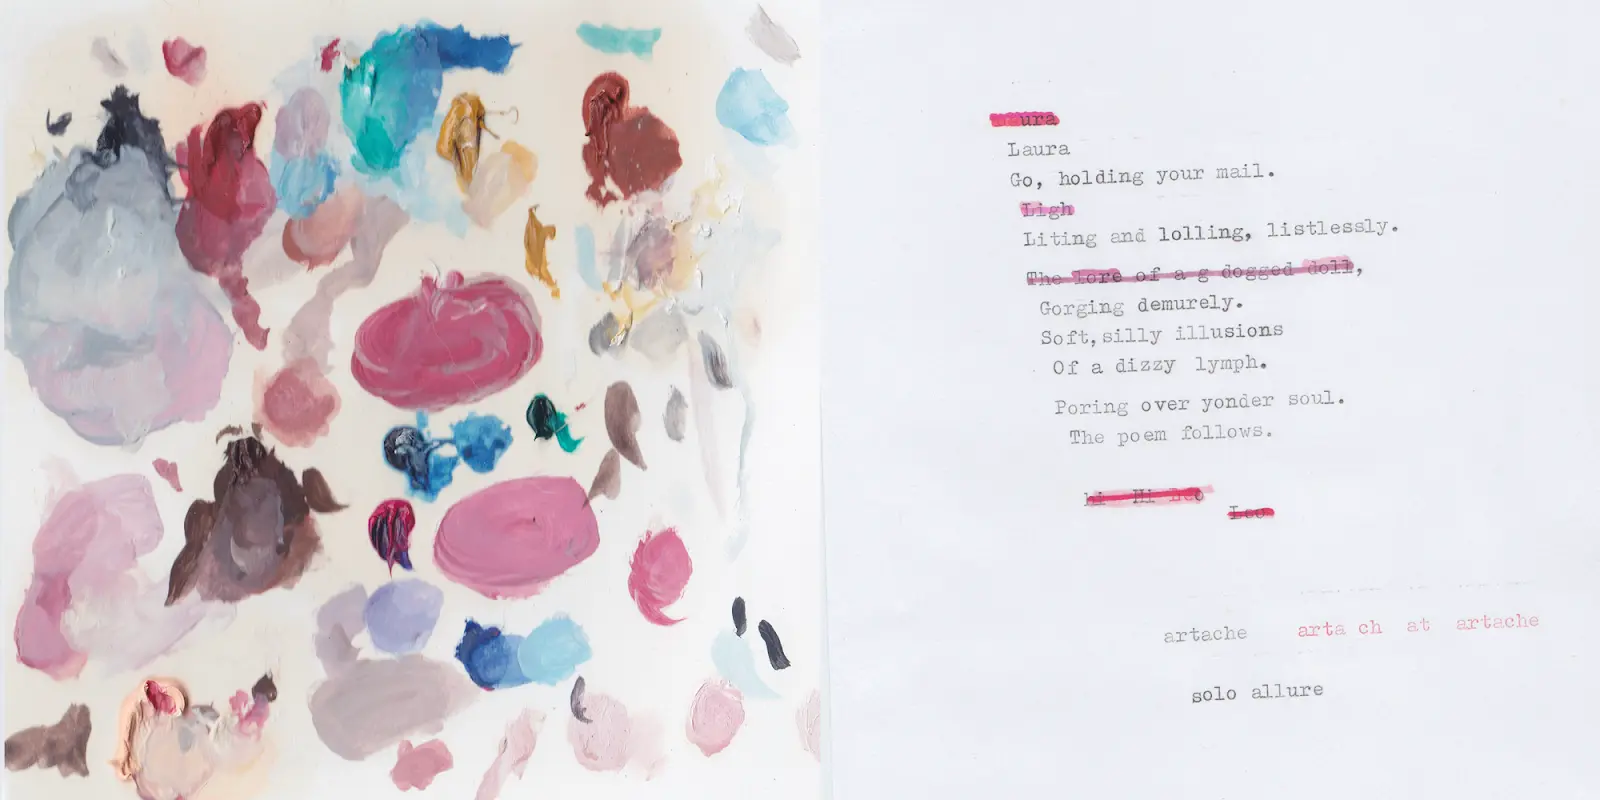 ura
Laura
Go, holding your mail.
Ligh
Liting and lolling, listlessly.
The Lore of a g dogged doll,
Gorging demurely.
Soft,silly illusions
Of a dizzy lymph.
Poring over yonder soul.
The poem follows.
hi Hi Leo
Leo
artache arta ch at artache
solo allure